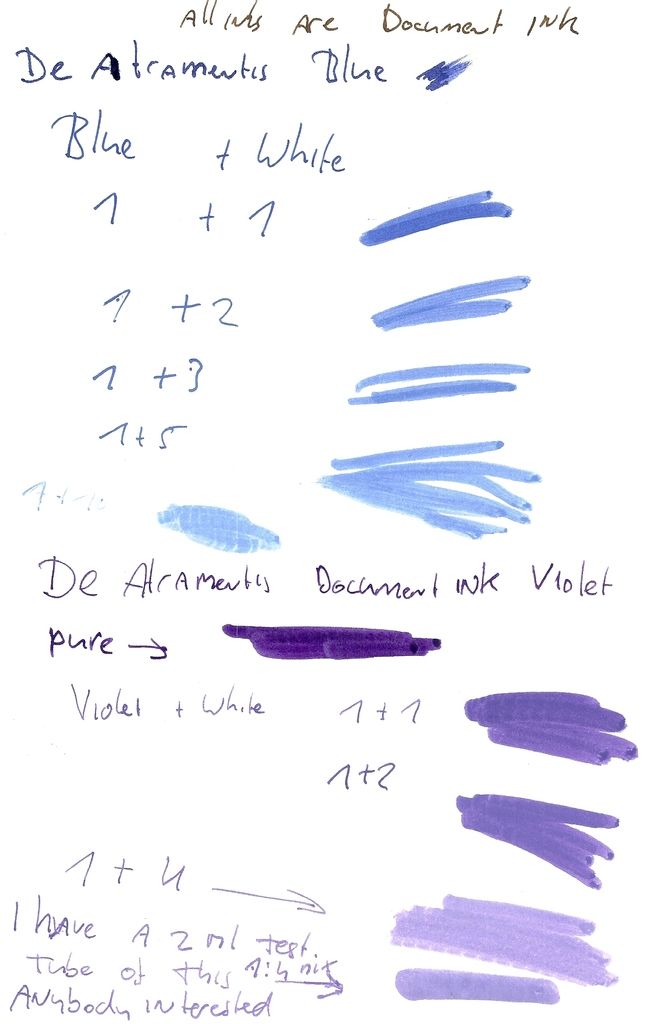 All inks are Document ink
De Atramentis Blue
Blue + White
1 + 1
1 + 2
1 + 3
1 + 5
De Atramentis Document ink Violet
pure →
Violet + White 1 + 1
1+2
1 + 4 →
I have A 2 ml test
Tube of this 1:4 mix
Anybody interested